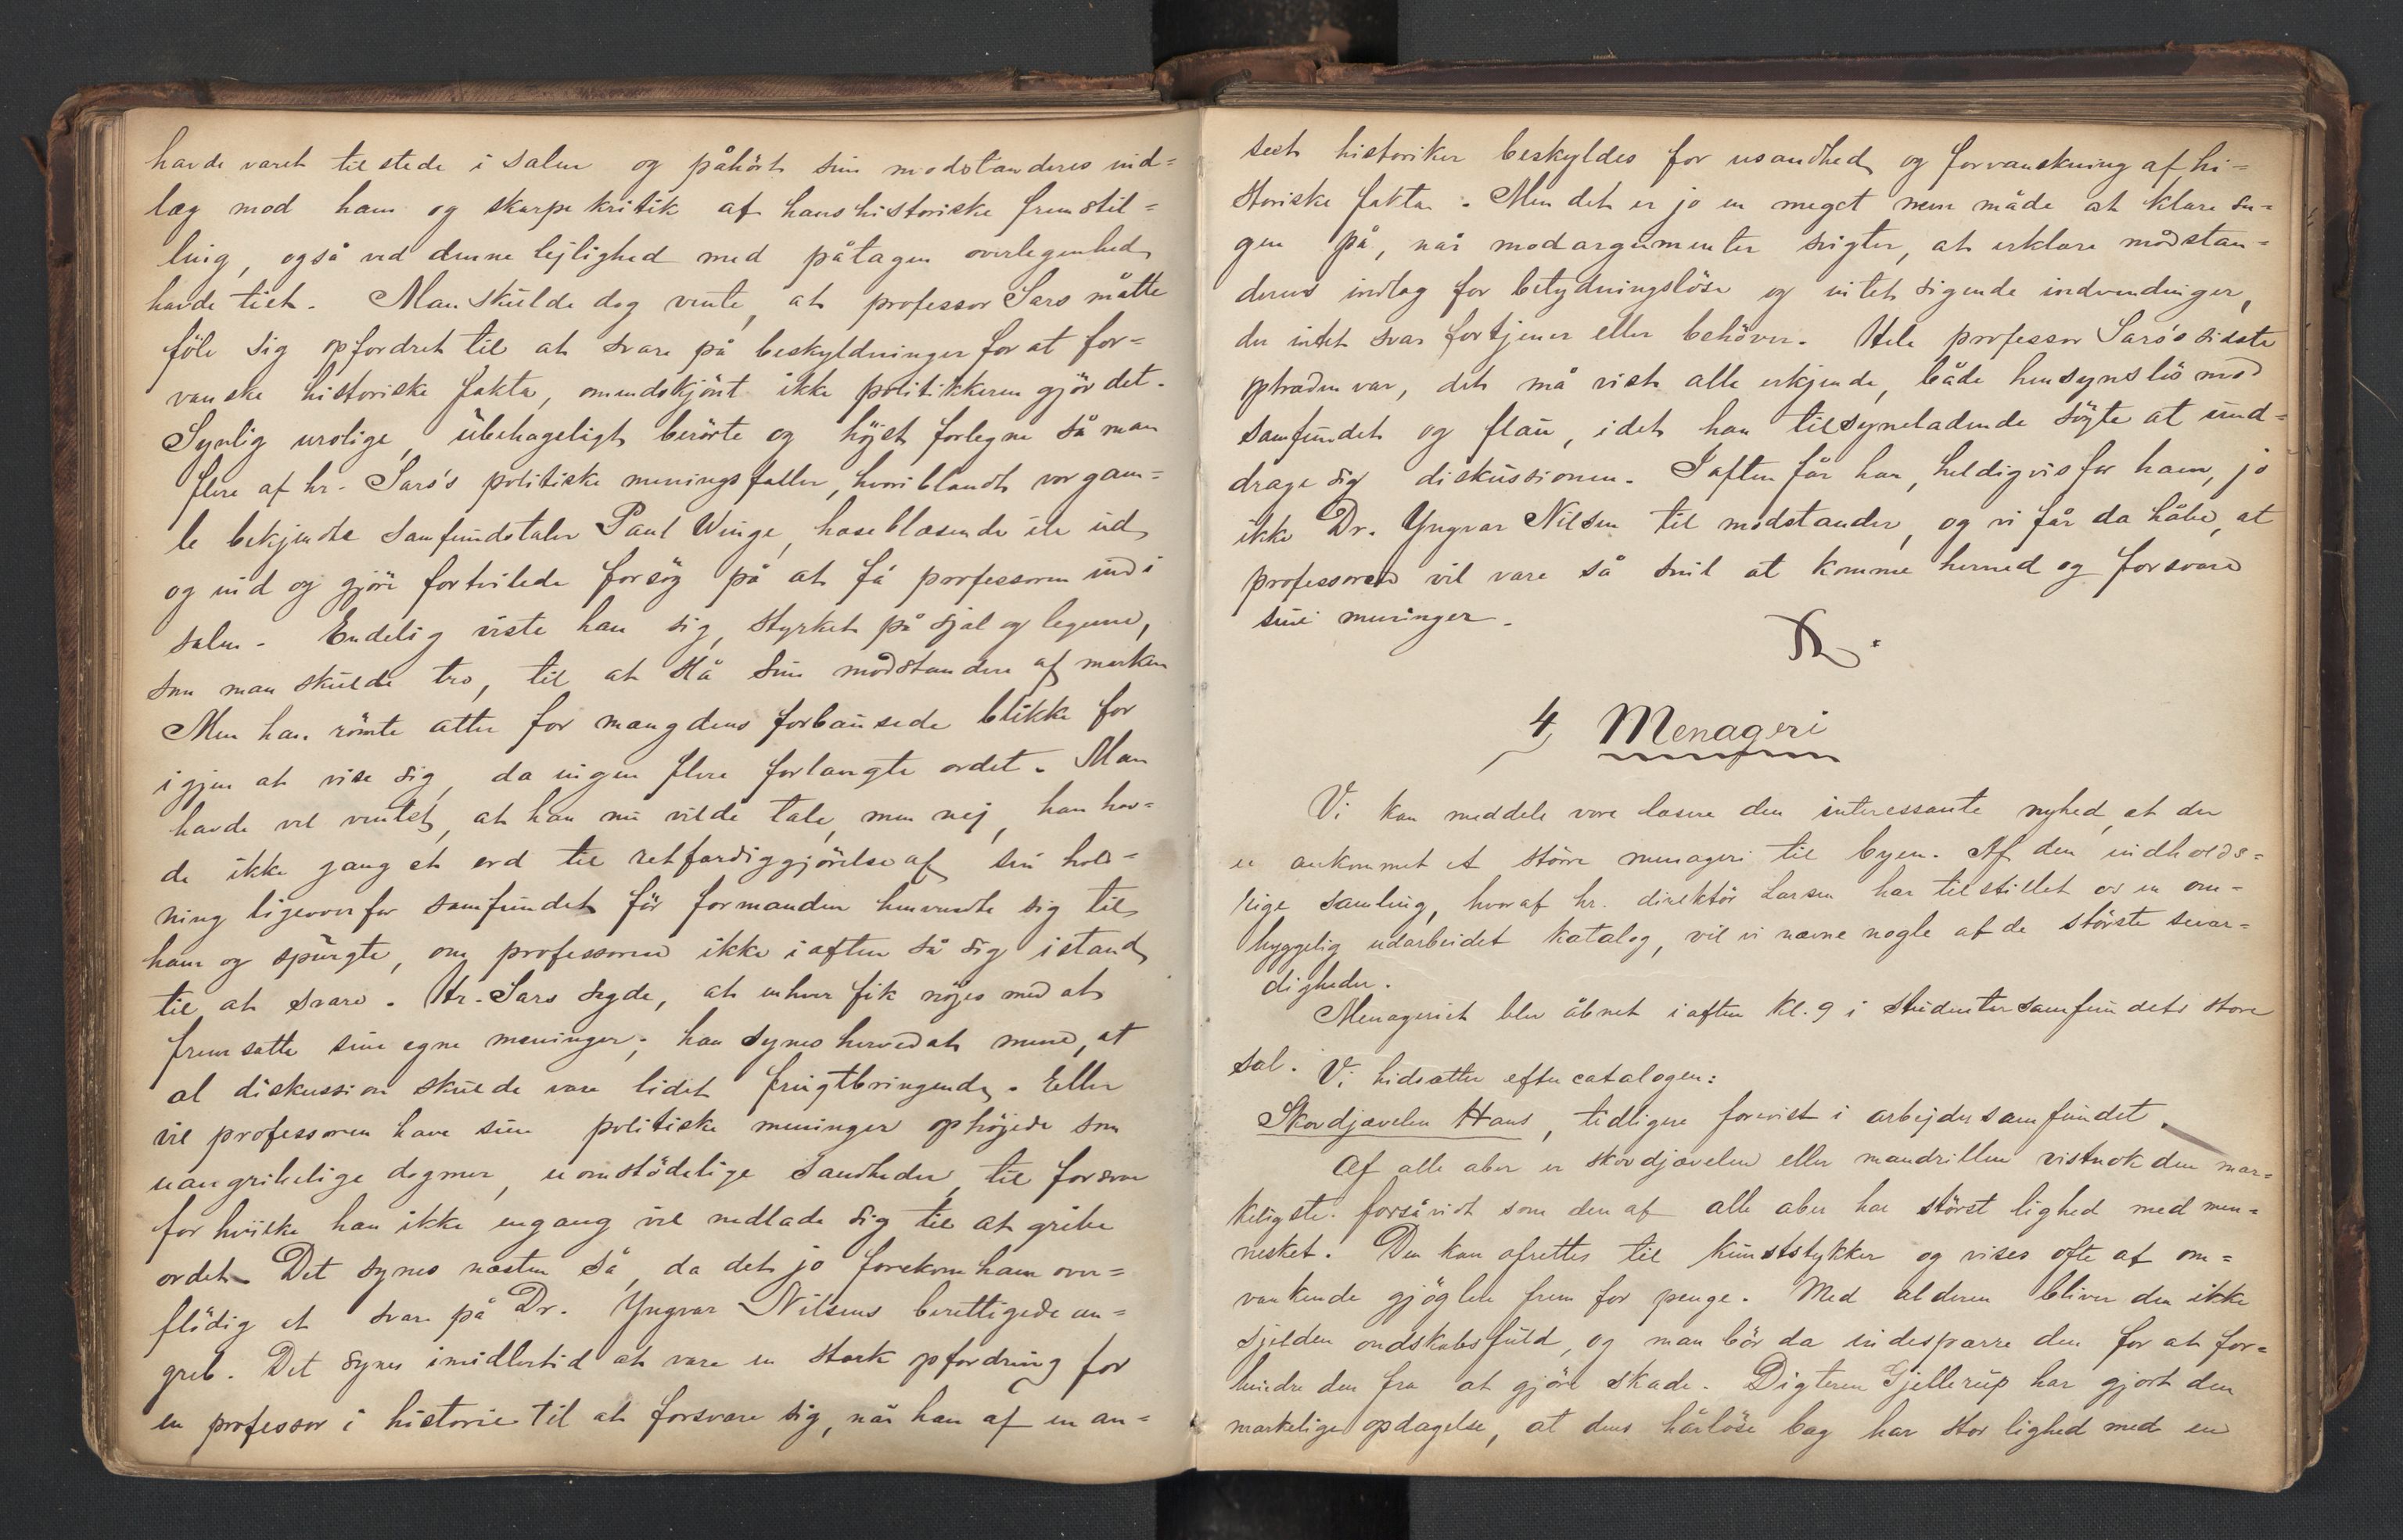 havde været tilstede i salen og påhört sine modstanderes ind=
læg mod ham og skarpe kritik af hans historiske fremstil=
ling, også ved denne lejlighed med påtagen overlegenhed
havde tiet. Man skulde dog vente, at professor Sars måtte
föle sig opfordret til at svare på beskyldninger for at for=
vanske historiske fakta, omendskjönt ikke politikkeren gjör det.
Synlig urolige, ubehageligt berörte og höjst forlegne så man
flere af hr. Sars's politiske meningsfæller, hvoriblandt vor gam=
le bekjendte samfundstaler Paul Winge, haseblæsende ile ud
og ind og gjöre fortvilede forsög på at få professoren ind i
salen. Endelig viste han sig, styrket på sjæl og legeme,
som man skulde tro, til at slå sine modstandere af marken
Men han römte atter for mængdens forbausede blikke for
igjen at vise sig, da ingen flere forlangte ordet. Man
havde vel ventet, at han nu vilde tale, men nej, han hav=
de ikke gang et ord til retfærdiggjörelse af sin hold=
ning ligeoverfor samfundet för formanden henvendte sig til
ham og spurgte, om professoren ikke iaften så sig istand
til at svare. Hr. Sars sagde, at enhver fik nöjes med at
fremsætte sine egne meninger; han synes herved at mene, at
al diskussion skulde være lidet frugtbringende. Eller
vil professoren have sine politiske meninger ophöjede som
uangribelige dogmer, uomstödelige sandheder, til forsvar
for hvilke han ikke engang vil nedlade sig til at gribe
ordet. Det synes næsten så, da det jo forekom ham over=
flödig at svare på Dr. Yngvar Nilsens berettigede an=
greb. Det synes imidlertid at være en stærk opfordring for
en professor i historie til at forsvare sig, når han af en an=
seet historiker beskyldes for usandhed og forvanskning af hi=
storiske fakta. Men det er jo en meget nem måde at klare sa=
gen på, når modargumenter svigter, at erklære modstan=
derens indlæg for betydningslöse og intet sigende indvendinger,
der intet svar fortjener eller behöver. Hele professor Sars's sidste
optræden var, det må vist alle erkjende, både hensynslös mod
samfundet og flau, idet han tilsyneladende sögte at und=
drage sig diskussionen. Iaften får han, heldigvis for ham, jo
ikke Dr. Yngvar Nilsen til modstander, og vi får da håbe, at
professoren vil være så snil at komme herned og forsvare
sine meninger.
4, Menageri
Vi kan meddele vore læsere den interessante nyhed, at der
er ankommet et större menageri til byen. Af den indholds=
rige samling, hvoraf hr. direktör Larsen har tilstillet os en om=
hyggelig udarbeidet katalog, vil vi nævne nogle af de störste sevær=
digheder.
Menageriet blev åbnet iaften kl. 9 i Studentersamfundets store
sal. Vi hidsætter efter catalogen:
Skovdjævelen Hans, tidligere forevist i arbejdersamfundet.
Af alle aber er skovdjævelen eller mandrillen vistnok den mær=
keligste. forsåvidt som den af alle aber har störst lighed med men=
nesket. Den kan afrettes til kunststykker og vises ofte af om=
vankende gjöglere frem for penge. Med alderen bliver den ikke
sjelden ondskabsfuld, og man bör da indespærre den for at for=
hindre den fra at gjöre skade. Digteren Gjellerup har gjort den
mærkelige opdagelse, at dens hårlöse bag har stor lighed med en